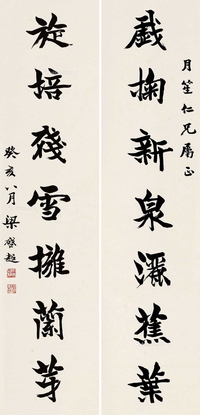 月笙仁兄属正
戲掬新泉灑蕉葉
旋培殘雪擁蘭芽
癸亥八月梁啟超